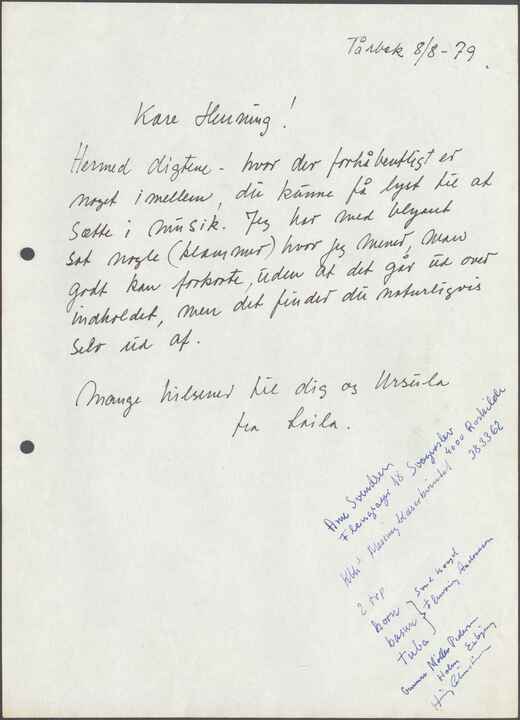 Tårbæk 8/8-79.
Kære Henning!
Hermed digtene - hvor der forhåbentligt er
noget imellem, du kunne få lyst til at
sætte i musik. Jeg har med blyant
sat nogle (klammer) hvor jeg mener, man
godt kan forkorte, uden at det går ud over
indholdet, men det finder du naturligvis
selv ud af.
Mange hilsener til dig og Ursula
fra Laila.
Arne Svendsen
18 Svogerslev
4000 Roskilde
383362
2 trp
horn
basun
tuba
Flemming Andersen
Gunnar Møller Pedersen
Holm